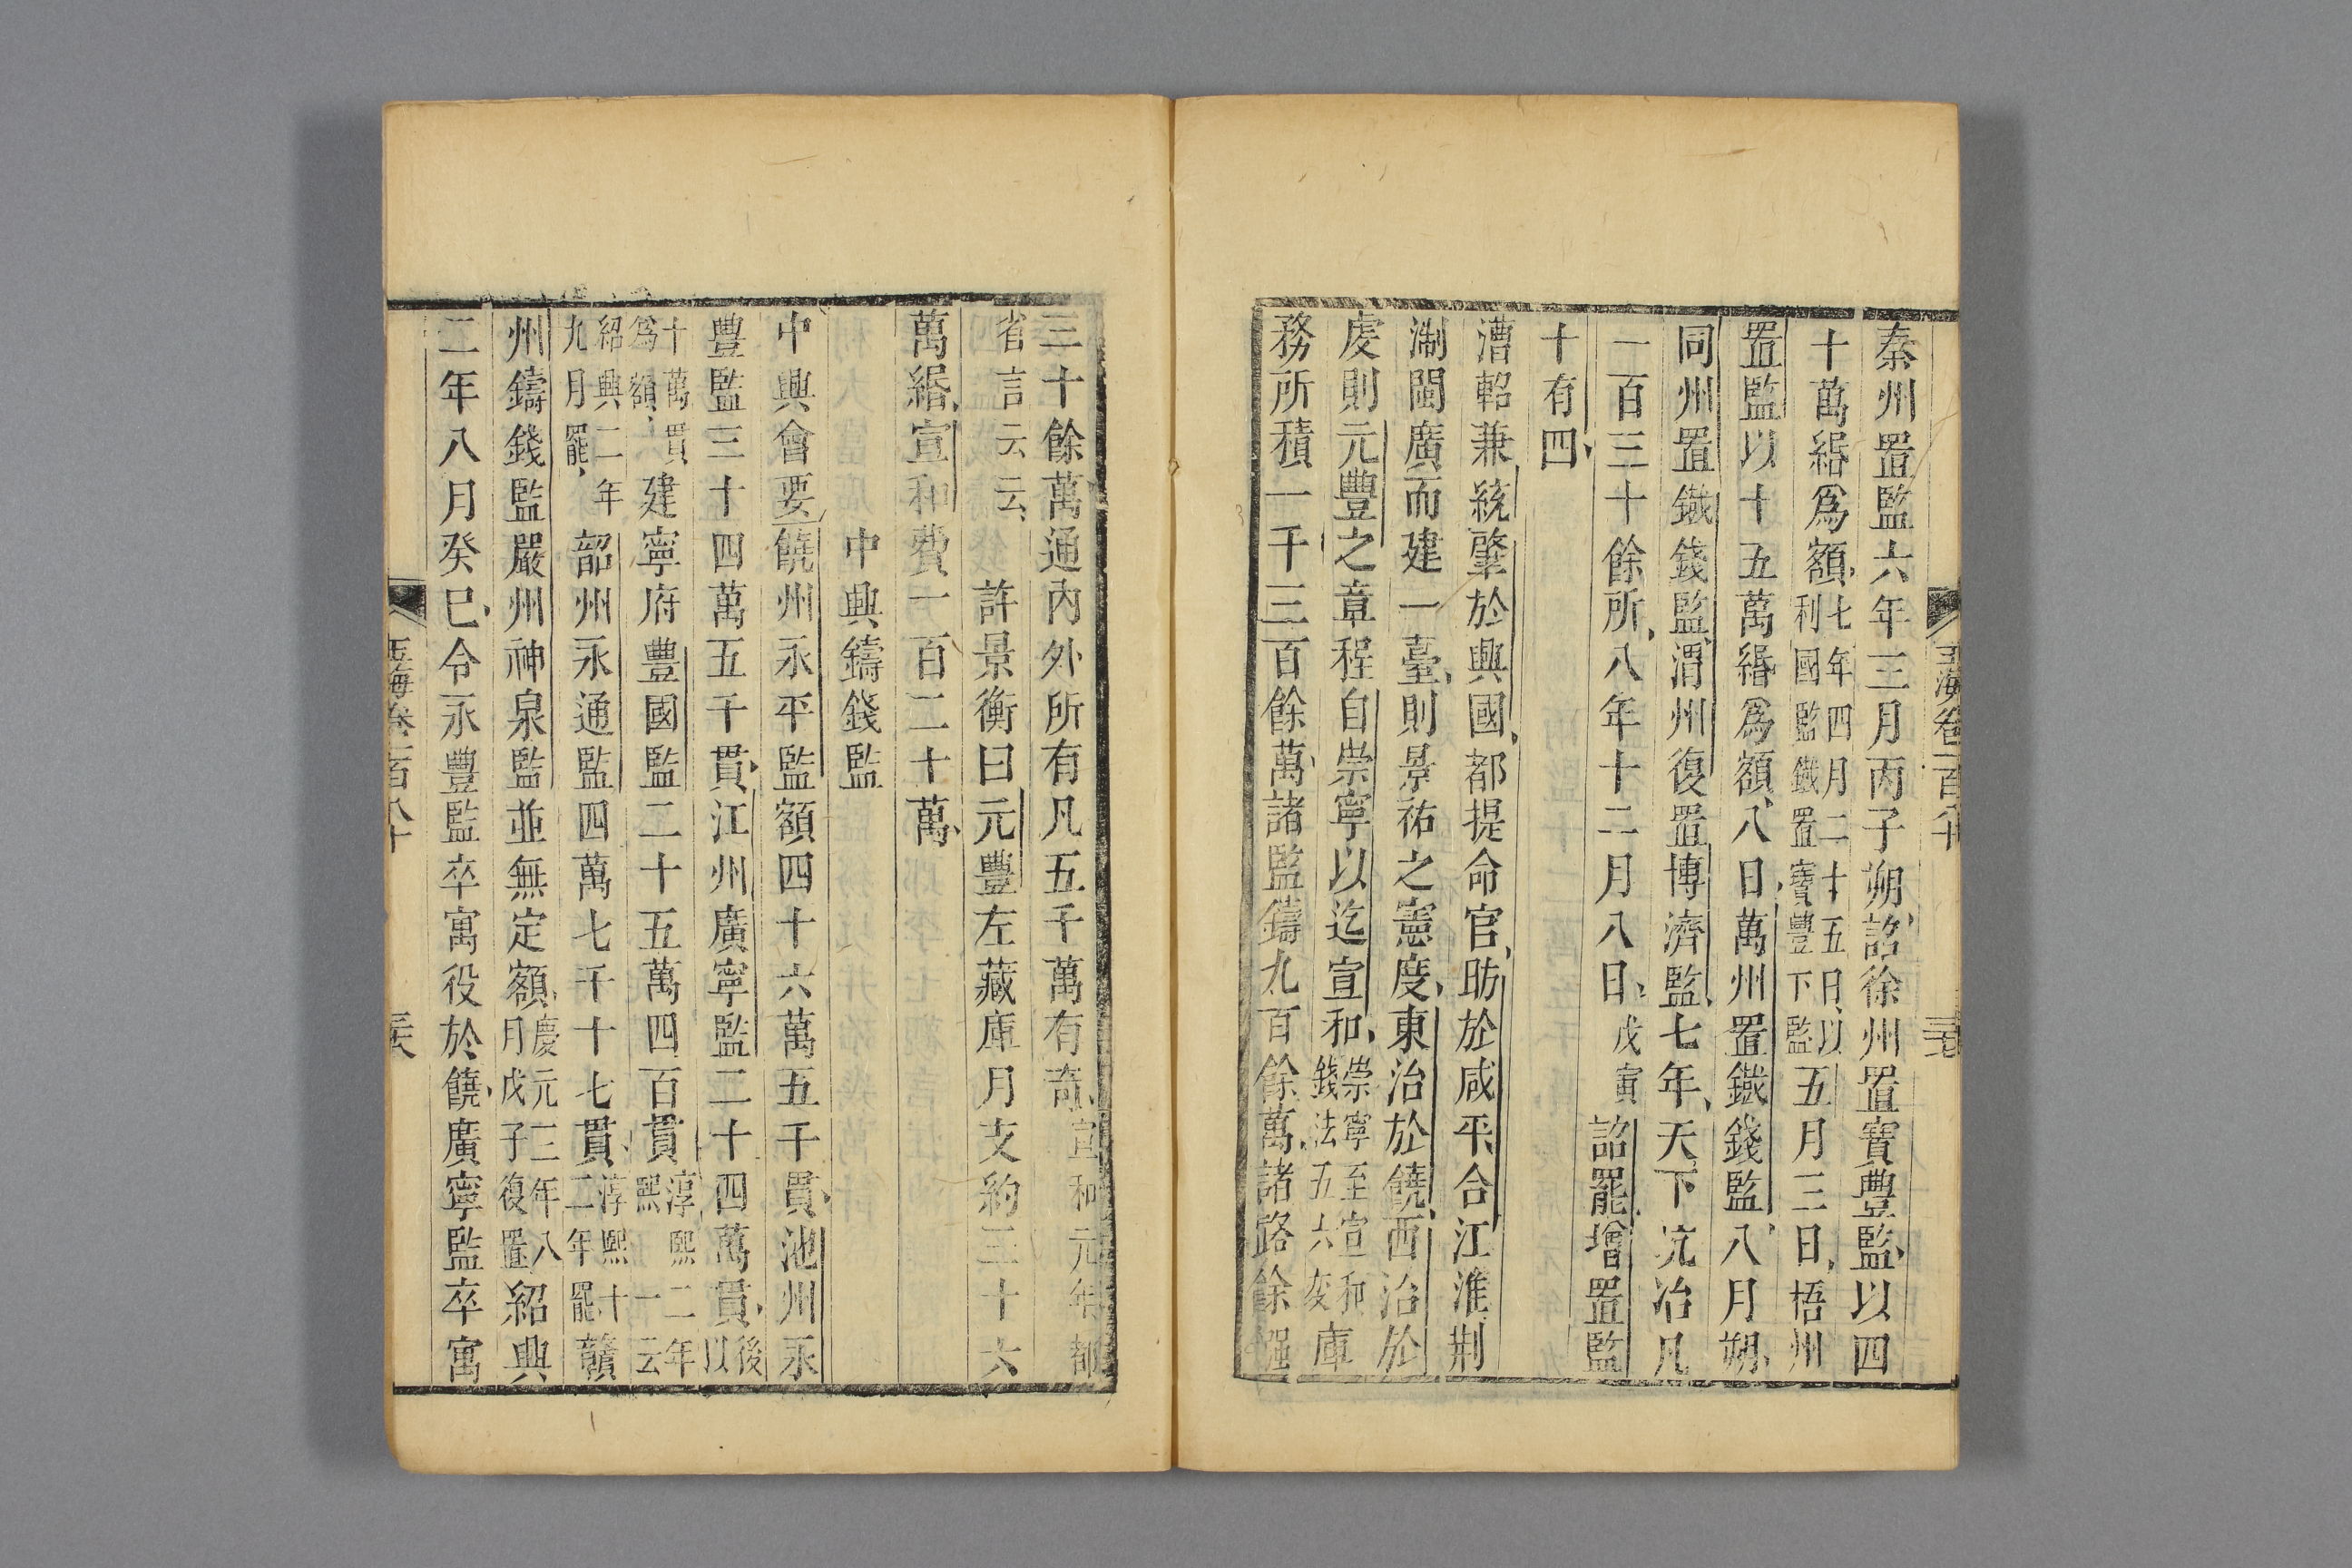 玉海卷一百八十
秦州置監六年三月丙子朔詔徐州置寶豐監以四
十萬緡爲額七年四月二十五日以利國監鐵置寶豐下監五月三日梧州
置監以十五萬緡爲額八日萬州置鐵錢監八月朔
同州置鐵錢監渭州復置博濟監七年天下坑冶凡
一百三十餘所八年十二月八日戊寅詔罷增置監
十有四
漕軺兼統肇於興國都提命官昉於咸平合江淮荆
淛閩廣而建一臺則景祐之憲度東治於饒西治於
虔則元豐之章程自崇寧以迄宣和崇寧至宣和錢法五六变庫
務所積一千三百餘萬諸監鑄九百餘萬諸路餘
三十餘萬通內外所有凡五千萬有奇宣和元年都
省言云云許景衡曰元豐左藏庫月支約三十六
萬緡宣和費一百二十萬
中興鑄錢監
中興會要饒州永平監額四十六萬五千貫池州永
豐監三十四萬五千貫江州廣寧監二十四萬貫後以
十萬貫爲額建寧府豐國監二十五萬四百貫淳熙二年熙一云
紹興二年九月罷韶州永通監四萬七千十七貫淳熙十二年罷贛
州鑄錢監嚴州神泉監並無定額慶元三年八月戊子復置紹興
二年八月癸巳令永豐監卒寓役於饒廣寧監卒寓
玉海卷一百八十
三六